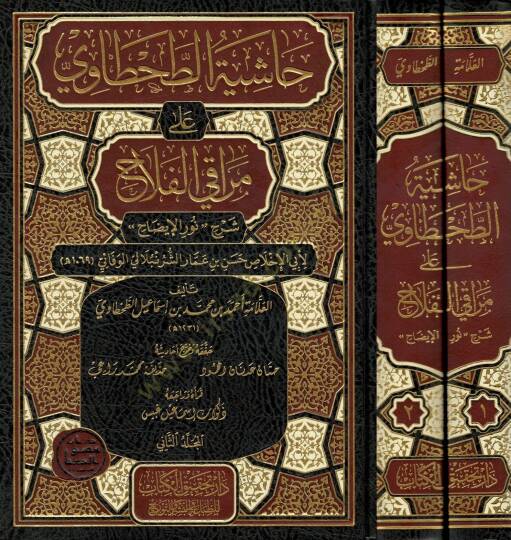 حاشية الطحطاوي
على
مراقي الفلاح
شرح «نور الإيضاح»
لأبي الإخلاص حسن بن عمار الشرنبلالي الوفائي (١٠٦٩ه)
تأليف
العلامة أحمد بن محمد بن إسماعيل الطحطاوي
(١٢٣١ه)
حققه وخرج أحاديثه
حذيفة محمد
إسماعيل
المجلد الثاني
للطباعة والنشر والتوزيع
العلامة الطحطاوي
حاشية
الطحطاوي
على
مراقي الفلاح
شرح «نور الإيضاح»
١ ٢